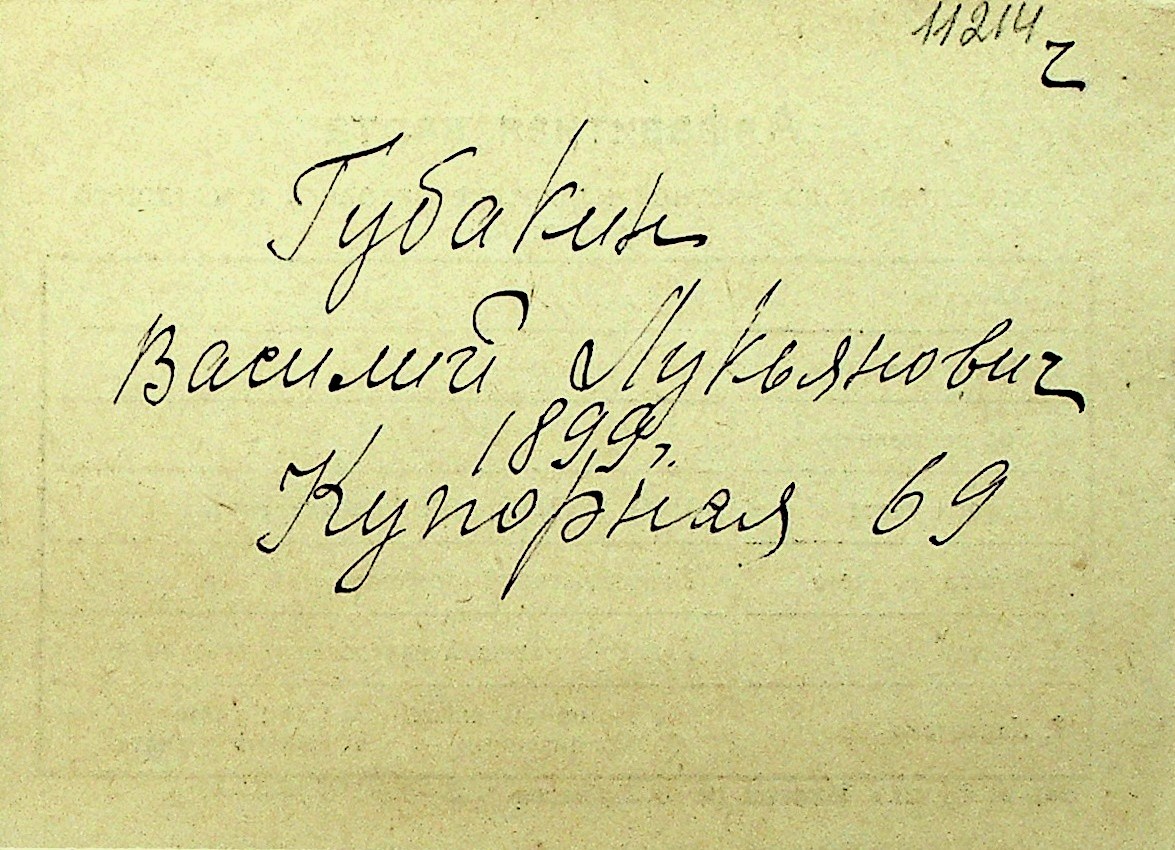 11214 ч
Губакин
Василий Лукьянович
1899г.
Купорная 69